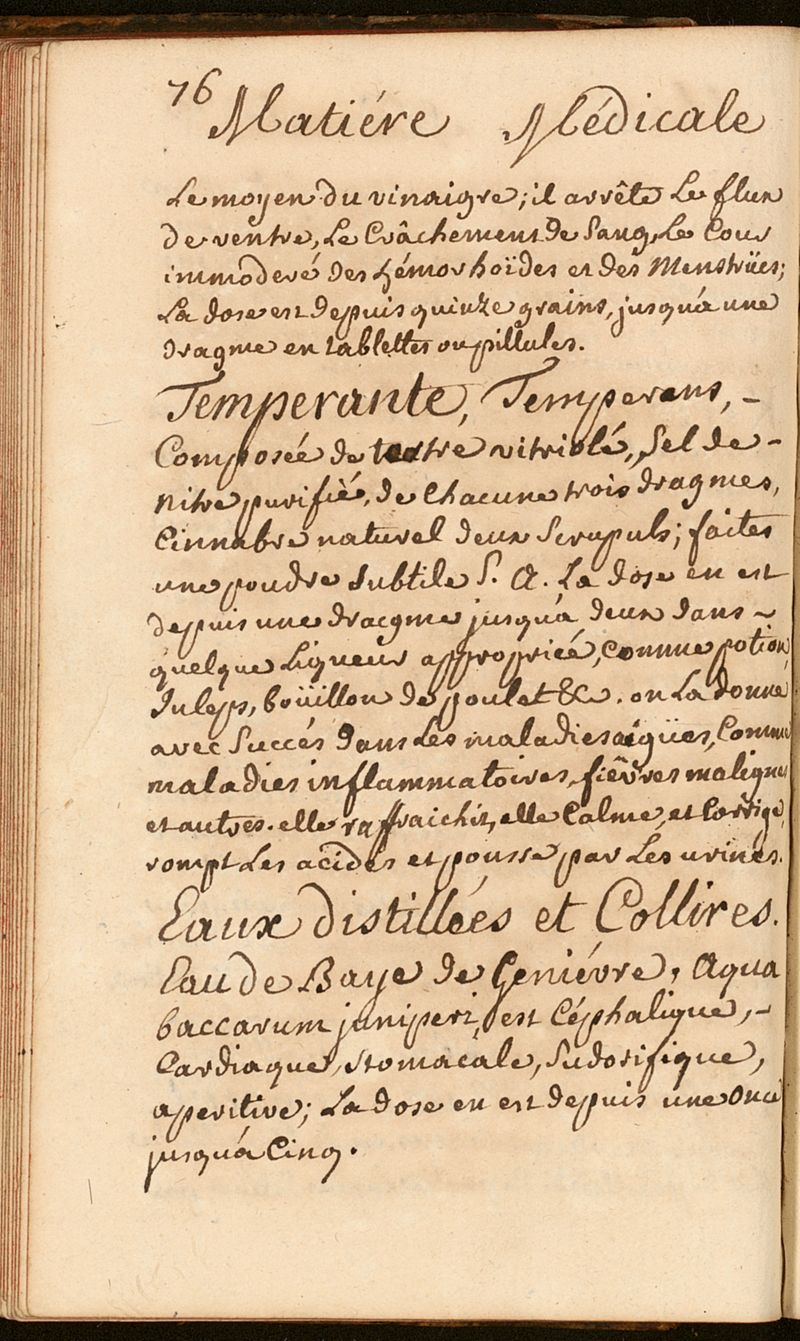 76
Matiére Médicale
Le moyen du vinaigre; il arrête Le flux
de ventre, Le Crâchement de Sang, Le Cour
immoderé des hémorhoïdes et des Menstrües;
La dose est depuis quinze grains, jusqu'a une
dragme en tablettes ou pillules.
Temperante, Temperans, -
Composée de tartre vitriolé, Sel de -
Nitre purifié, de Chacune trois dragmes,
Cinnabre naturel deux Scrupuls; faites
une poudre subtile S. A. La dose en est
depuis une dracgme jusqu'a deux dans -
quelque Liqueur appropriée, Comme potion,
Juleps, boüillon de poulet &c. on La donne
avec Succés dans Les maladies aigües, Comme
maladies inflammatoires, fiêvres malignes
et autres. elle raffraichit, elle Calme, et Corrige,
rompt Les acides et pousse par Les urines.
Eaux distillées et Collires.
Eau de Baye de Geniévre, Aqua
baccarum juniperi, est Céphalique, -
Cardiaque, Stomacale, Sudorifique,
aperitive; La dose en est depuis une Once
jusqu'á Cinq.